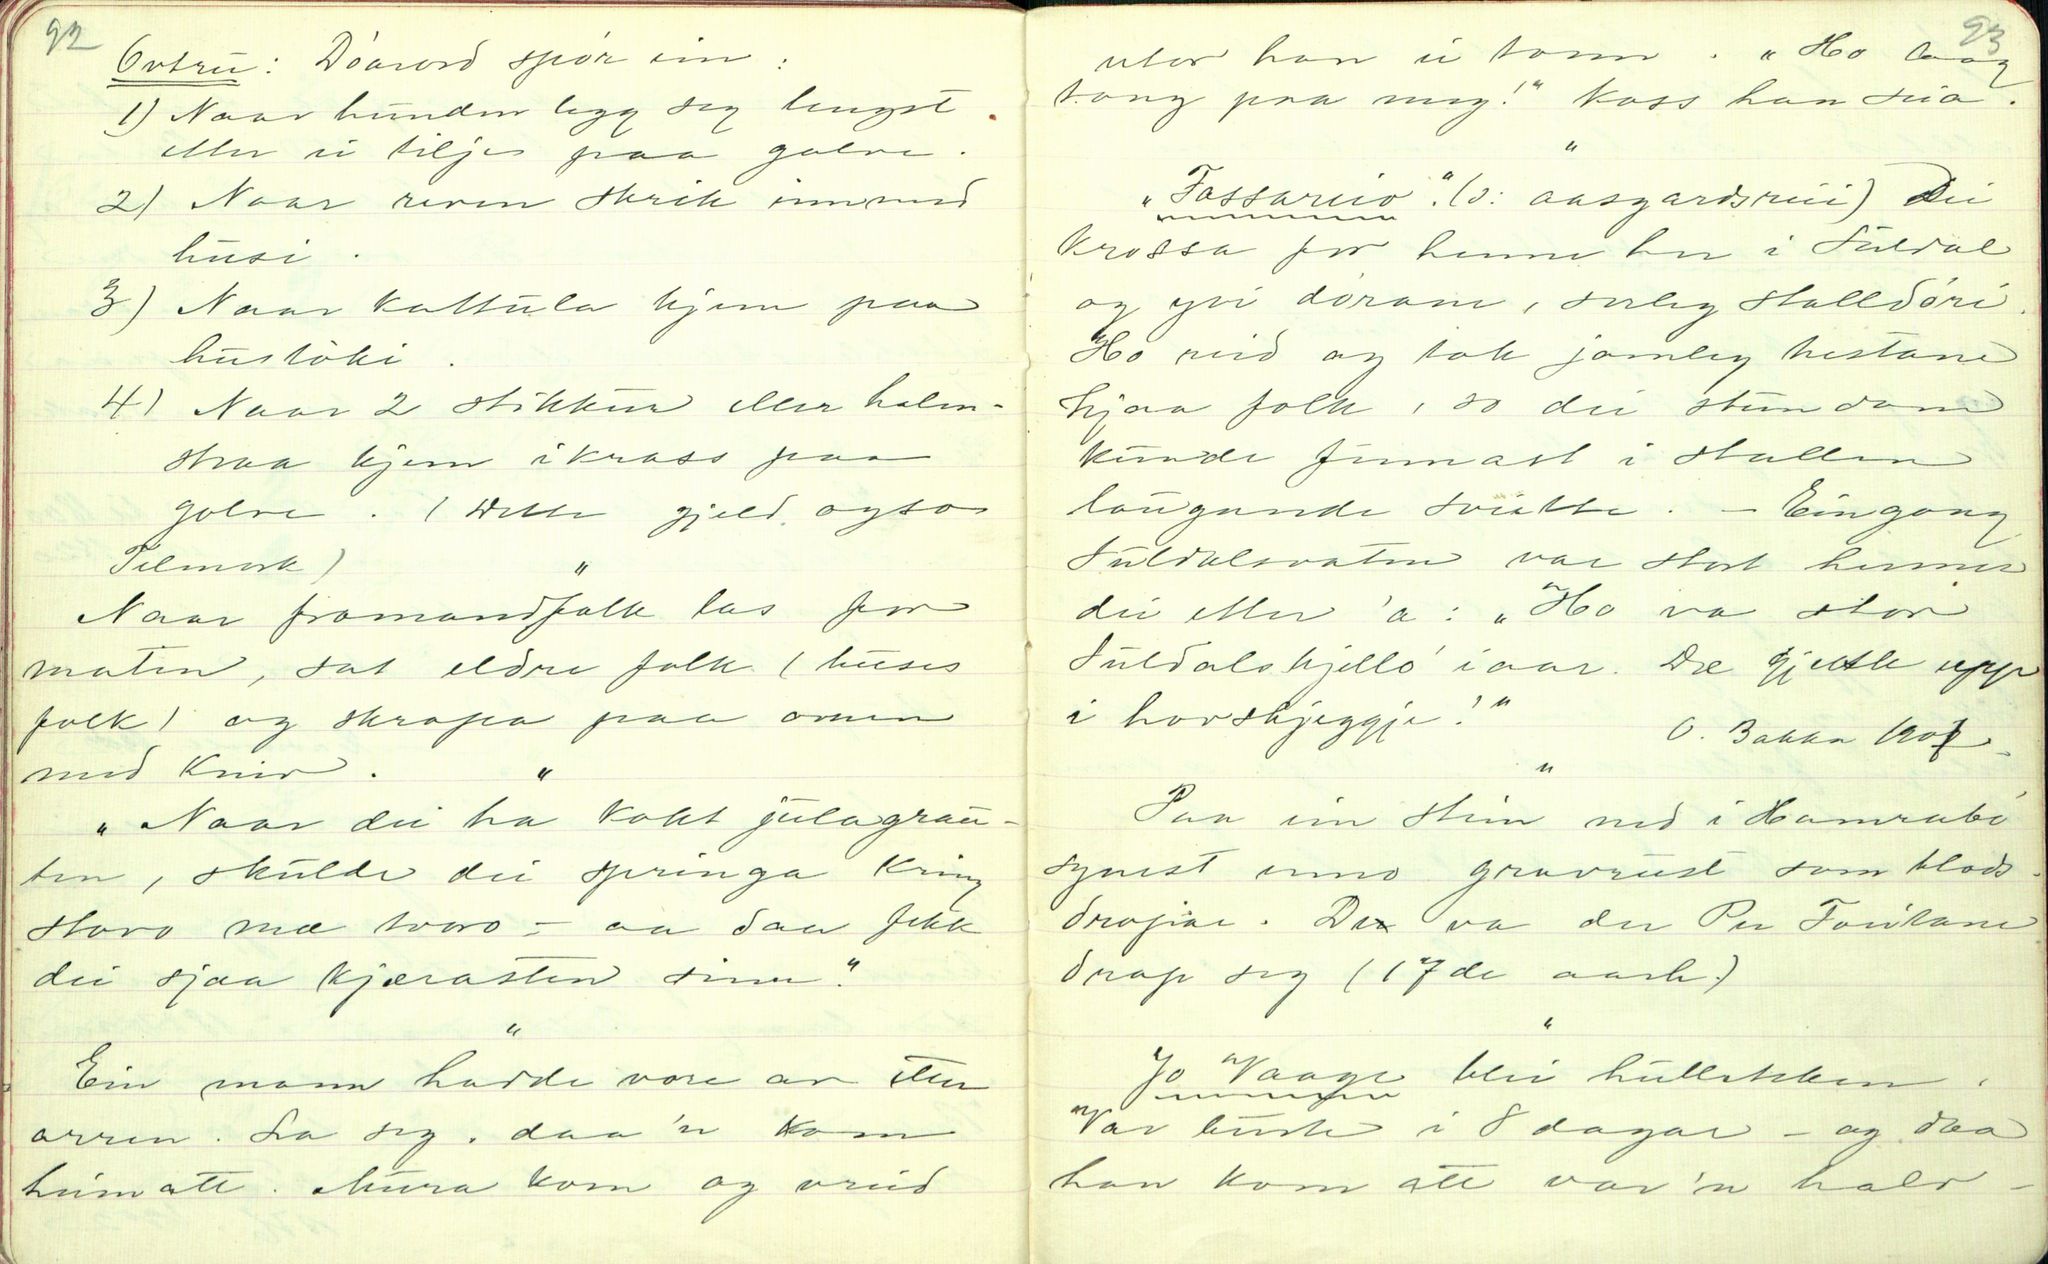 92
Ovtru: Döarord spör ein:
1) Naar hunden legg seg lengst
etter ei tilje paa golve.
2) Naar reven skrik innmed
husi.
3) Naar kattula kjem paa
hustöki.
4) Naar 2 stikkur eller halm-
straa kjem i kross paa
golve. (Dette gjeld ogso
Telemork)
"
Naar framandfolk las for
maten, sat eldre folk (huses
folk) og skrapa paa omnen
med kniv.
"
„Naar dei ha kokt julagrau-
ten, skulde dei springa kring
stovo mæ tvoro – aa daa fekk
dei sjaa kjærasten sinn."
"
Ein mann hadde vore av etter
orren. La seg, daa 'n kom
heimatt. Mura kom og vreid
93
utor han ei tonn. „Ho laag
tong paa meg!" Kass han sia.
"
„Fossareio". (ɔ: aasgardsreii) Dei
krossa for henne her i Suldal
og yvi dörane, serleg stalldöri.
Ho reid og tok jamleg hestane
hjaa folk, so dei stundom
kunde finnast i stallen
laugande sveitte. – Eingong
Suldalsvatnen var stort hermer
dei etter 'a: „Ho va stor
Suldalskjello i aar. Dæ gjekk upp
i horskjeggje!"
O. Bakka 1907.
"
Paa ein stein ned i Hamrabö
synest enno gravrust som blods-
dropar. Dæ va der Per Foutane
drap seg (17de aarh.)
"
Jo Vaage blei hulletekken.
Var burte i 8 dagar – og daa
han kom att var 'n halv-